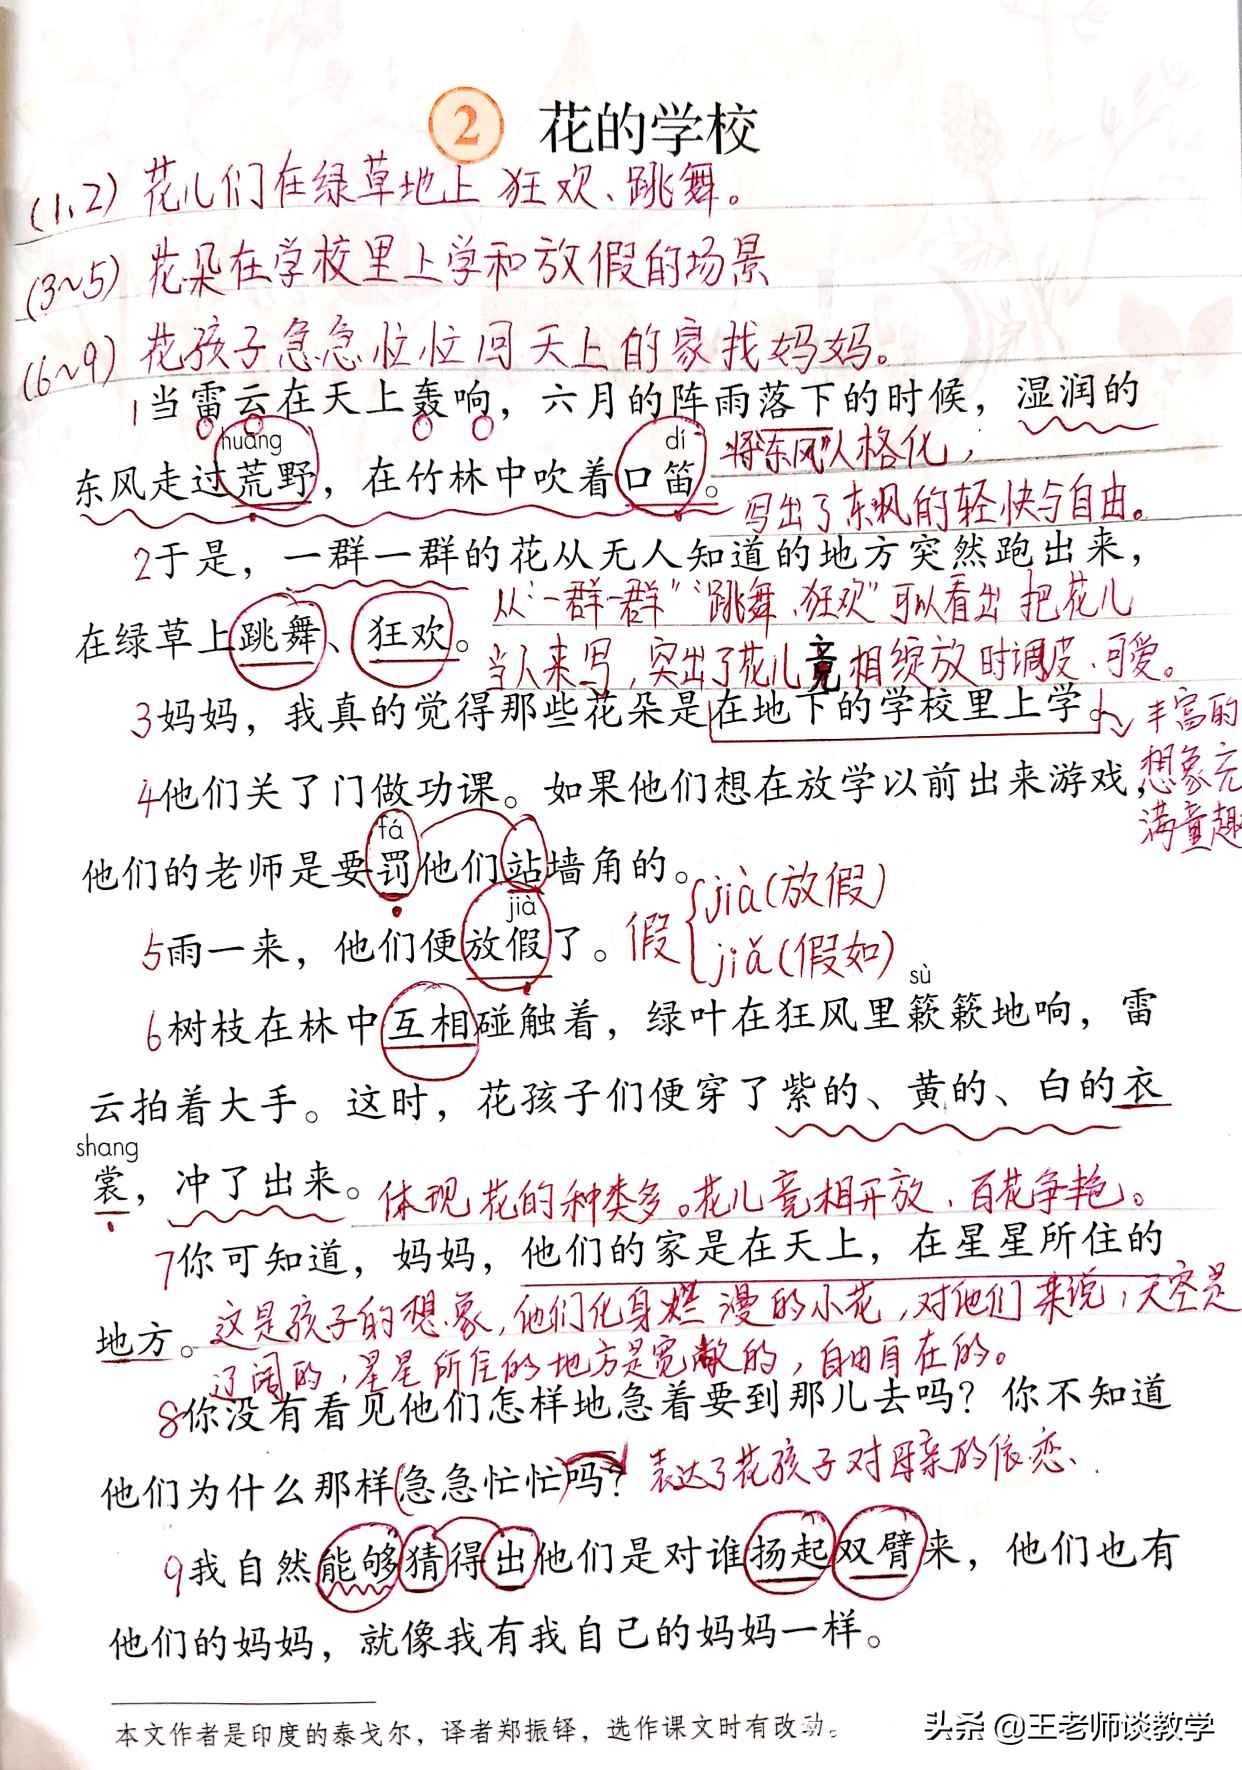 2 花的学校
(1、2) 花儿们在绿草地上狂欢、跳舞。
(3~5) 花朵在学校里上学和放假的场景
(6~9) 花孩子急急忙忙回天上的家找妈妈。
1当雷云在天上轰响，六月的阵雨落下的时候，湿润的
huāng dí
东风走过荒野，在竹林中吹着口笛。
将“东风”人格化，
写出了东风的轻快与自由。
2于是，一群一群的花从无人知道的地方突然跑出来，
在绿草上跳舞、狂欢。
从“一群一群”“跳舞、狂欢”可以看出把花儿
当人来写，突出了花儿竟相绽放时调皮、可爱。
3妈妈，我真的觉得那些花朵是在地下的学校里上学。
丰富的
想象充
满童趣
4他们关了门做功课。如果他们想在放学以前出来游戏，
fá
他们的老师是要罚他们站墙角的。
jià
5雨一来，他们便放假了。
假 jià(放假)
jiǎ(假如)
sù
6树枝在林中互相碰触着，绿叶在狂风里簌簌地响，雷
云拍着大手。这时，花孩子们便穿了紫的、黄的、白的衣
shang
裳，冲了出来。
体现花的种类多。花儿竞相开放、百花争艳。
7你可知道，妈妈，他们的家是在天上，在星星所住的
地方。
这是孩子的想象，他们化身烂漫的小花，对他们来说，天空是
辽阔的，星星所住的地方是宽敞的，自由自在的。
8你没有看见他们怎样地急着要到那儿去吗？你不知道
他们为什么那样急急忙忙吗？
表达了花孩子对母亲的依恋、
9我自然能够猜得出他们是对谁扬起双臂来，他们也有
他们的妈妈，就像我有我自己的妈妈一样。
本文作者是印度的泰戈尔，译者郑振铎，选作课文时有改动。
头条 @王老师谈教学